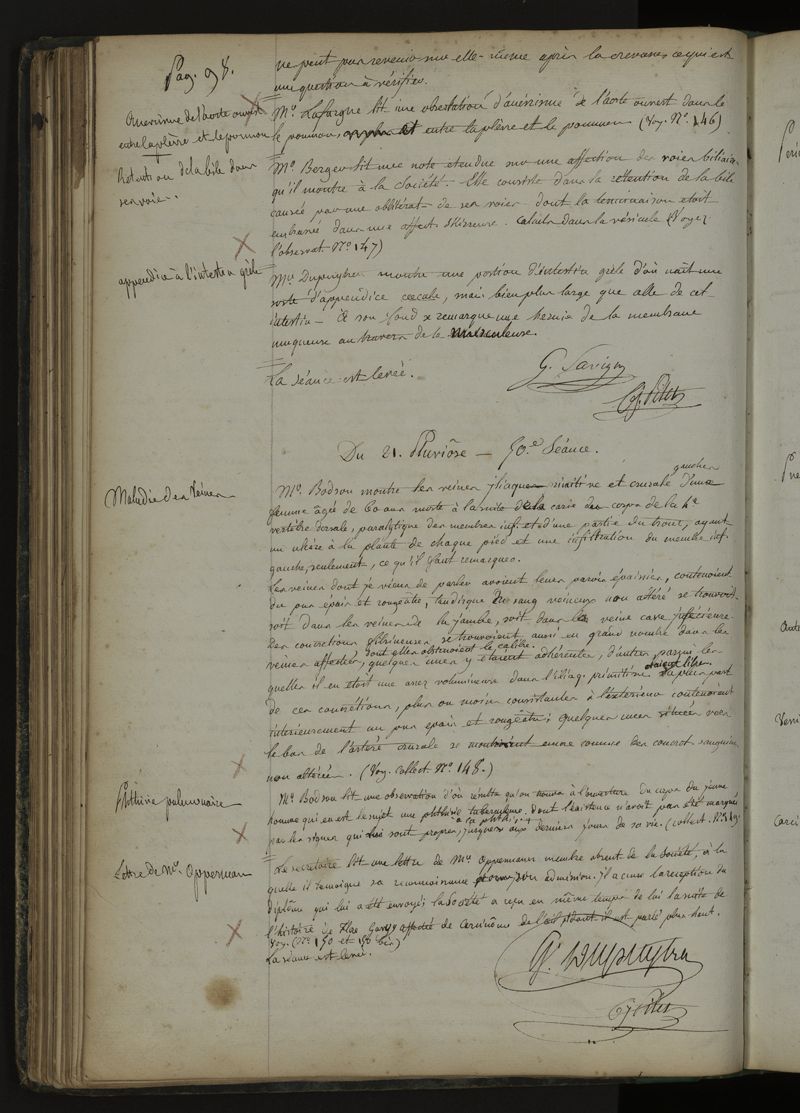 Pag. 98.
ne peut pas revenir sur elle-même après la crevasse ce qui est
une question à vérifier.
Anevrisme de l'aorte ouvert
entre la plèvre et le poumon
Mr. Lafargue lit une observation d'anévrisme de l'aorte ouvert dans le
le poumon, et entre la plèvre et le poumon (Voy. No. 146)
Retention de la bile dans
ses voies.
Mr. Berger lit une note etendue sur une affection des voies biliaires
qu'il montre à la Société. Elle consiste dans la rétention de la bile
causée par une oblitérat- de ses voies dont la terminaison etoit
dans une affect. Calculs dans la vésicule (Voyez
l'observat No 147)
appendice à l'intestin grèle
Mr. Dupuytren montre une portion d'intestin grèle d'où nait une
sorte d'appendice cœcale, mais bien plus large que celle de cet
intestin - à son fond se remarque une hernie de la membrane
muqueuse au travers de la musculeuse.
La séance est levée.
G. Savigny
Du 21. Pluviôse - 50.e Séance.
Maladie des Veines
Mr. Bodson montre les veines iliaques primitive et crurale gauches d'une
femme âgée de 60 ans morte à la suite de la carie du corps de la 4e
vertèbre dorsale, paralytique des membres inf. et d'une partie du tronc, ayant
un ulcère à la plante de chaque pied et une infiltration du membre inf.
gauche, seulement, ce qu'il faut remarquer.
Les veines dont je viens de parler avoient leurs parois épaissies, contenoient
du pus épais et rougeâtre, tandis que du sang veineux non altéré se trouvoit
soit dans les veines de la jambe, soit dans la veine cave inférieure.
Des concrétions fibrineuses se trouvoient aussi en grand nombre dans les
veines affectées, dont elles obstruoient le calibre. quelques unes y étaient adhérentes, d'autres parmi les
quelles il en etoit une assez volumineuse dans l'iliaq. primitive étaient libres. La plus part
de ces concrétions, plus ou moins consistantes à l'exterieur contenoient
interieurement un pus épais et rougeâtre; quelques unes situées vers
le bas de l'artère crurale se montroient encore comme des concret. sanguines
non altérées. (Voy. Collect. No. 148.)
Phthisie pulmonaire
Mr. Bodson lit une observation d'où résulte qu'on trouva à l'ouverture du corps du jeune
homme qui en est le sujet une phthisie tuberculeuse. Dont l'existence n'avoit pas été marquée
par les signes qui lui sont propres, à la phthisie jusques aux derniers jours de sa vie. (collect. No. 149
Lettre de Mr. Opperman
Le secretaire lit une lettre de Mr. Oppermann membre absent de la Société, à la
quelle il temoigne sa reconnaissance pour son admission. Il accuse la reception du
diplôme qui lui a été envoyé; la Société a reçu en même temps de lui la suite de
l'histoire de affectée de de l'œil dont il est parlé plus haut.
Voy. (No. 150 et 150 bis)
La séance est levée.
G. Dupuytren